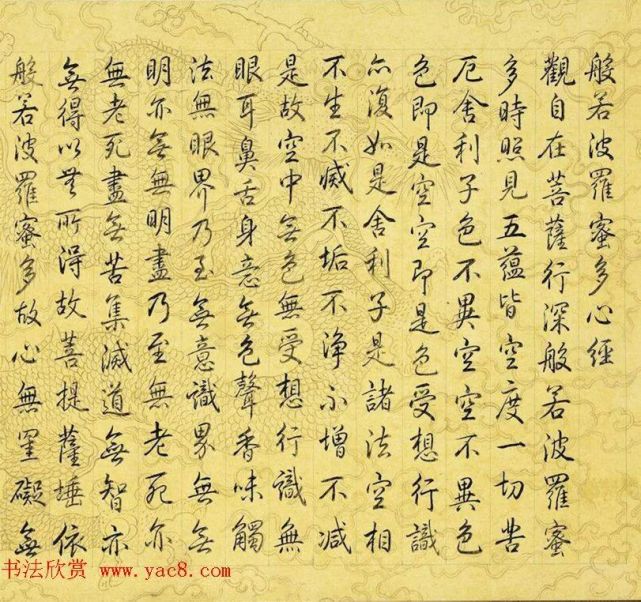 般若波羅蜜多心經
觀自在菩薩行深般若波羅蜜
多時照見五蘊皆空度一切苦
厄舍利子色不異空空不異色
色即是空空即是色受想行識
亦復如是舍利子是諸法空相
不生不滅不垢不淨不增不减
是故空中無色無受想行識無
眼耳鼻舌身意無色聲香味觸
法無眼界乃至無意識界無無
明亦無無明盡乃至無老死亦
無老死盡無苦集滅道無智亦
無得以無所得故菩提薩埵依
般若波羅蜜多故心無罣礙無
书法欣赏 www.yac8.com